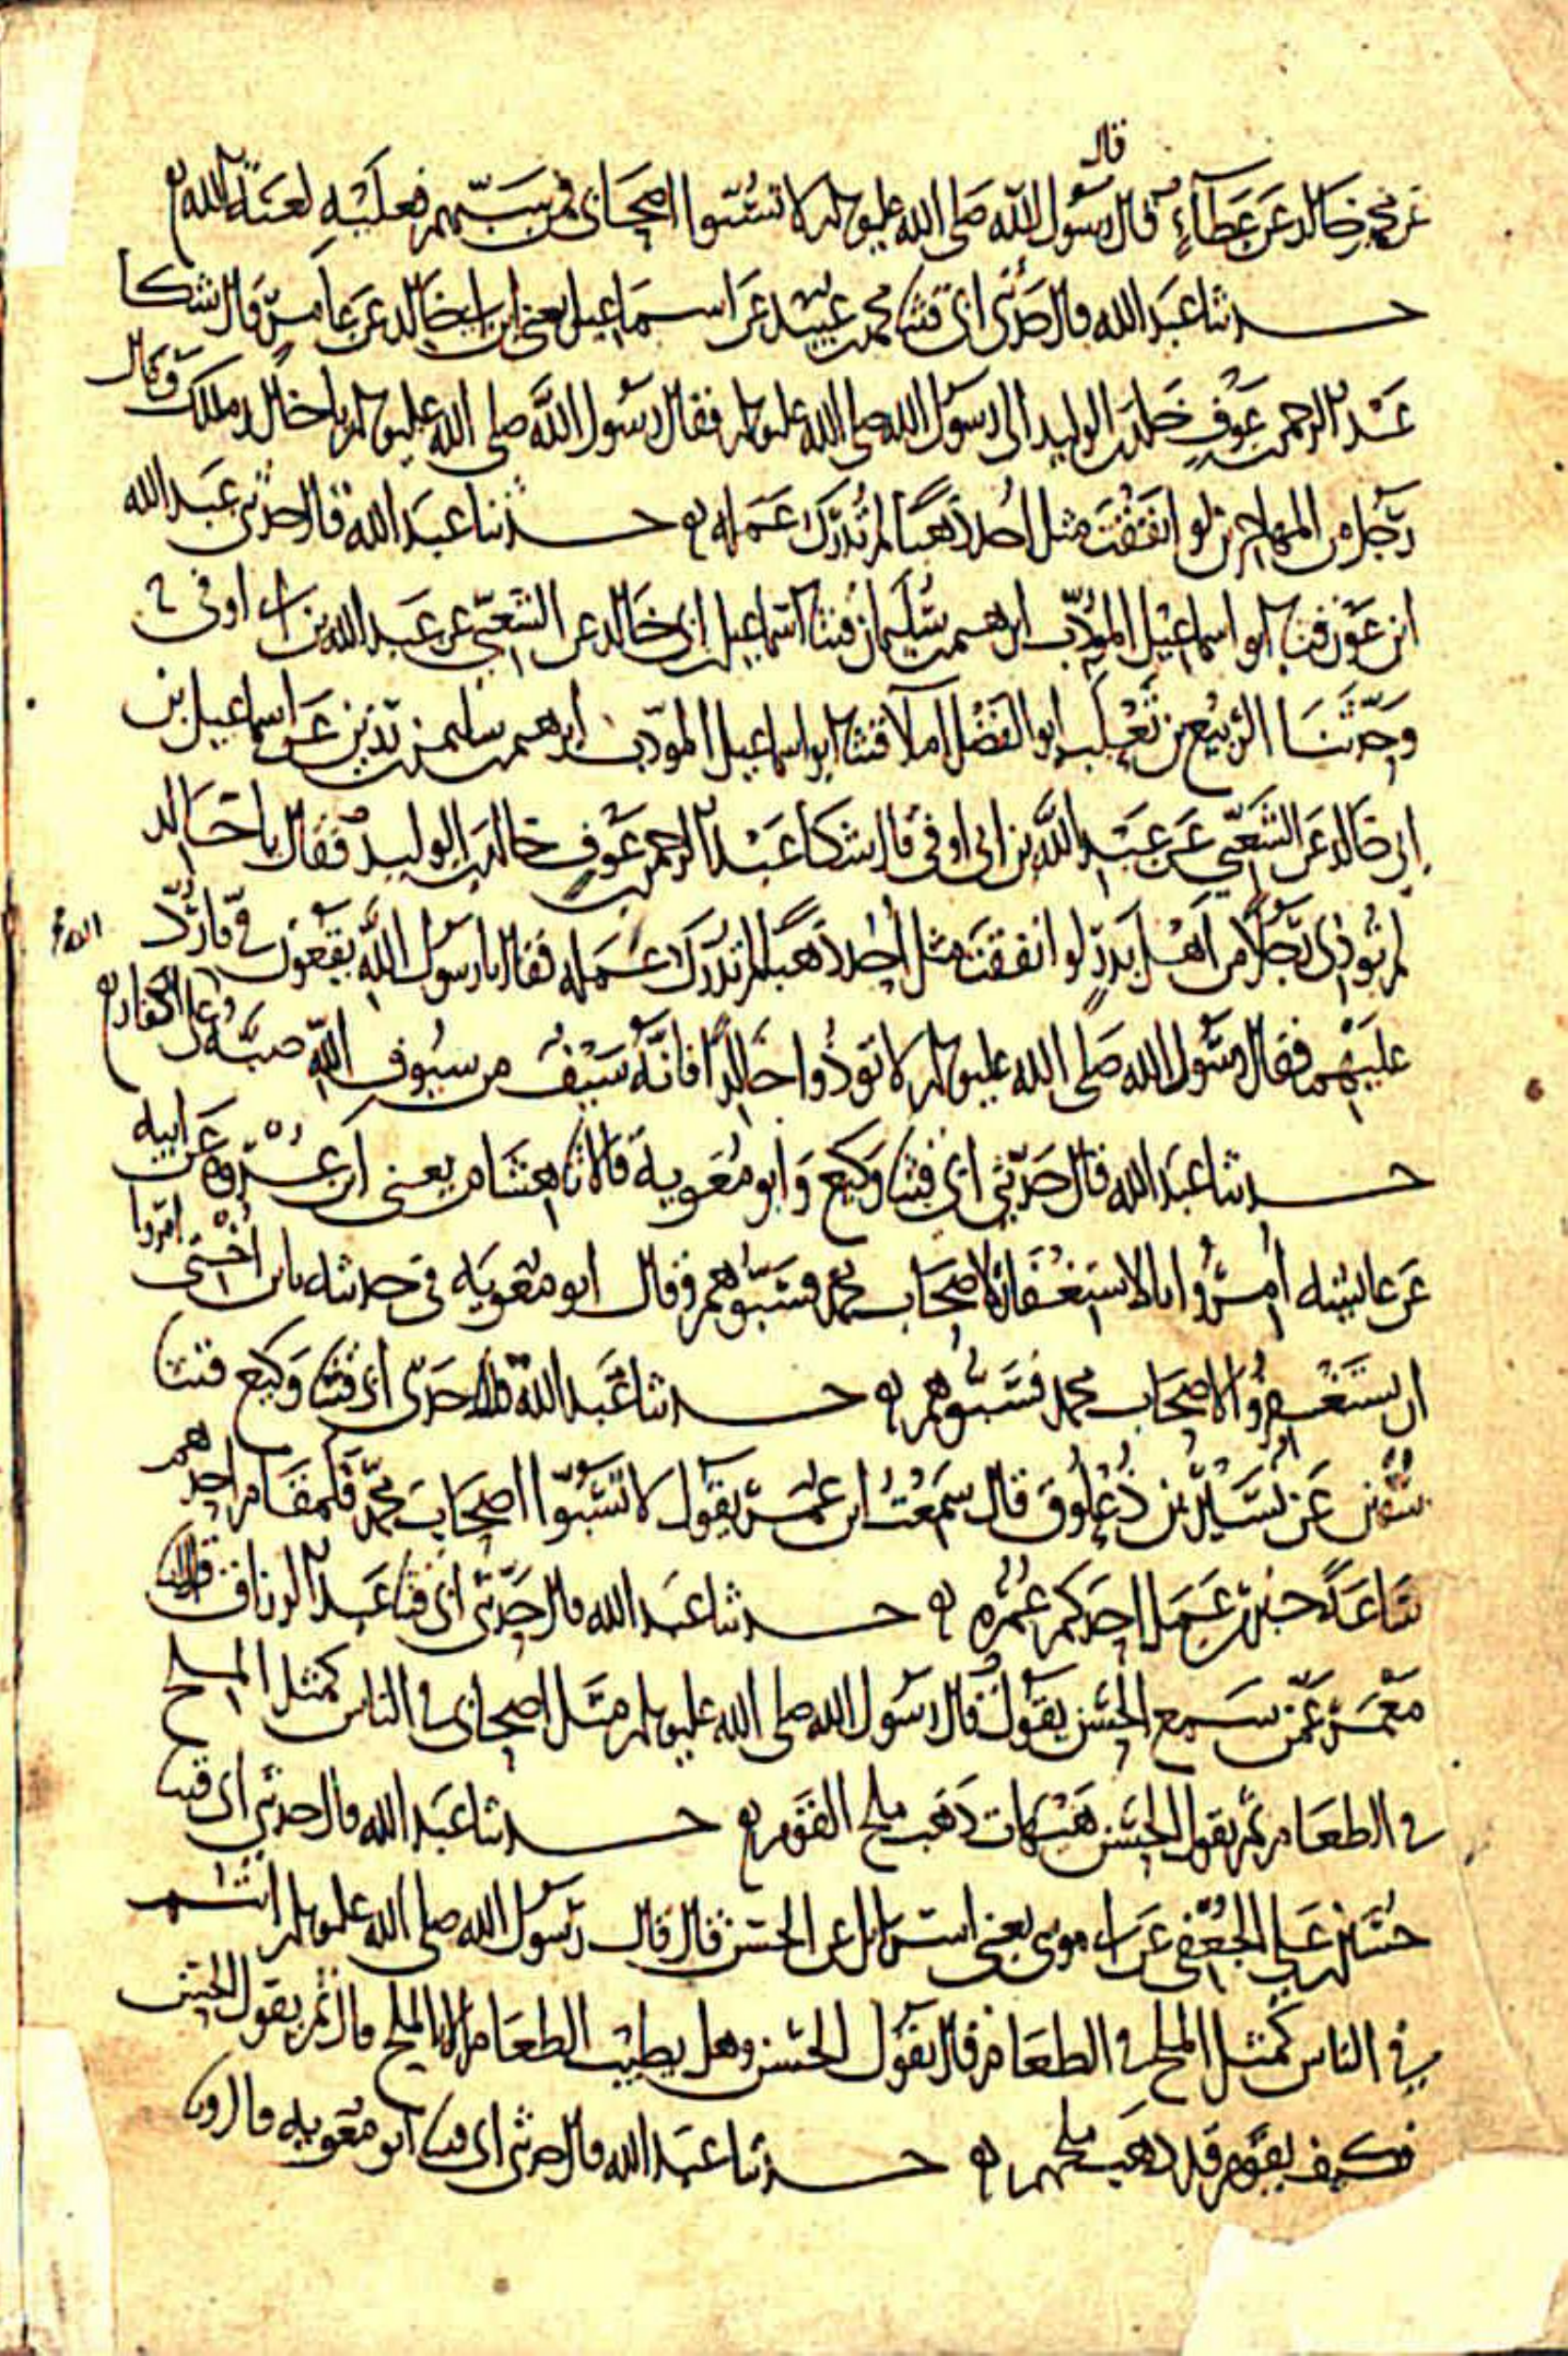 قال
عن محمد بن خالد عن عطاء قال رسول الله صلى الله عليه وسلم لا تسبوا اصحابي فمن سبهم فعليه لعنة الله
حدثنا عبد الله قال حدثني ابي قثنا محمد بن عبيد عن اسماعيل يعني ابن ابي خالد عن عامر قال شكا
عبد الرحمن بن عوف خلد بن الوليد الى رسول الله صلى الله عليه وسلم فقال رسول الله صلى الله عليه وسلم يا خالد ملك وقال
رجل من المهاجرين لو انفقت مثل احد ذهبا لم تدرك عمله حدثنا عبد الله قال حدثني عبد الله
ابن عون قثنا ابو اسماعيل المؤدب ابرهيم بن سليمان قثنا اسماعيل بن ابي خالد عن الشعبي عن عبد الله بن ابي اوفى
وحدثنا الربيع بن ثعلب ابو الفضل املا قثنا ابو اسماعيل المؤدب ابرهيم بن سليمن بن رزين عن اسماعيل بن
ابي خالد عن الشعبي عن عبد الله بن ابي اوفى قال شكا عبد الرحمن بن عوف خالد بن الوليد فقال يا خالد
لم تؤذي رجلا من اهل بدر لو انفقت مثل احد ذهبا لم تدرك عمله فقال يا رسول الله يقعون في فارد
عليهم فقال رسول الله صلى الله عليه وسلم لا تؤذوا خالدا فانه سيف من سيوف الله صبه الله على الكفار
حدثنا عبد الله قال حدثني ابي قثنا وكيع وابو معوية قالا نا هشام يعني ابن عروة عن ابيه
عن عائشة امروا بالاستغفار لاصحاب محمد فسبوهم وقال ابو معوية في حديثه يابن اختي امروا
ان يستغفروا لاصحاب محمد فسبوهم حدثنا عبد الله قال حدثني ابي قثنا وكيع قثنا
سفين عن نسير بن ذعلوق قال سمعت ابن عمر يقول لا تسبوا اصحاب محمد فلمقام احدهم
ساعة خير من عمل احدكم عمره حدثنا عبد الله قال حدثني ابي قثنا عبد الرزاق قال انا
معمر عمن سمع الحسن يقول قال رسول الله صلى الله عليه وسلم مثل اصحابي في الناس كمثل الملح
في الطعام ثم يقول الحسن هيهات ذهب ملح القوم حدثنا عبد الله قال حدثني ابي قثنا
حسين بن علي الجعفي عن ابي موسى يعني اسرائيل عن الحسن قال قال رسول الله صلى الله عليه وسلم انتم
في الناس كمثل الملح في الطعام قال يقول الحسن وهل يطيب الطعام الا بالملح قال ثم يقول الحسن
فكيف بقوم قد ذهب ملحهم حدثنا عبد الله قال حدثني ابي قثنا ابو معوية قال